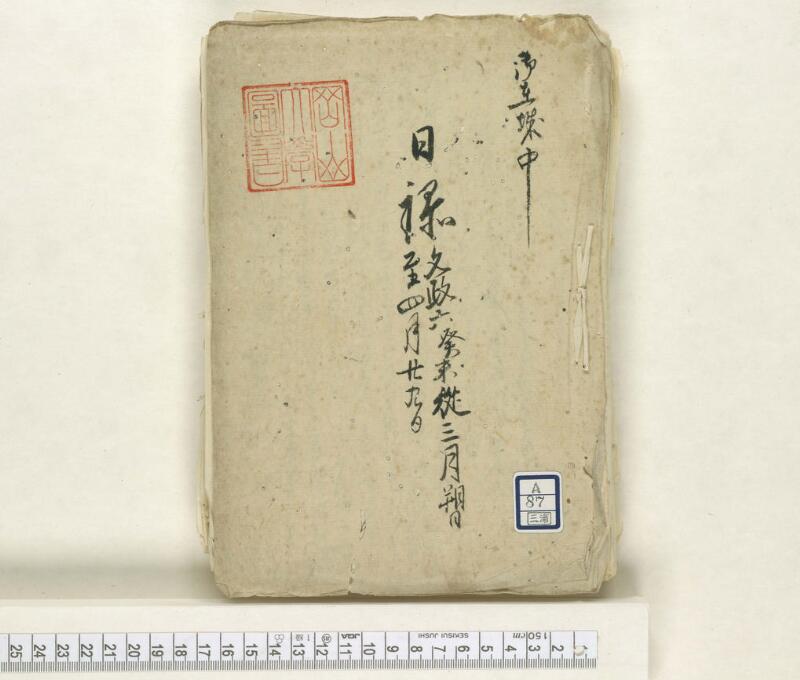 御在城中
日禄
文政六癸未従三月朔日
至四月廿九日
岡山
大学
図書
A
87
三浦
25 24 23 22 21 20 19 18 17 16 15 14 13 12 11 10 9 8 7 6 5 4 3 2
JQA
SENSUI JUSHI
cm
150